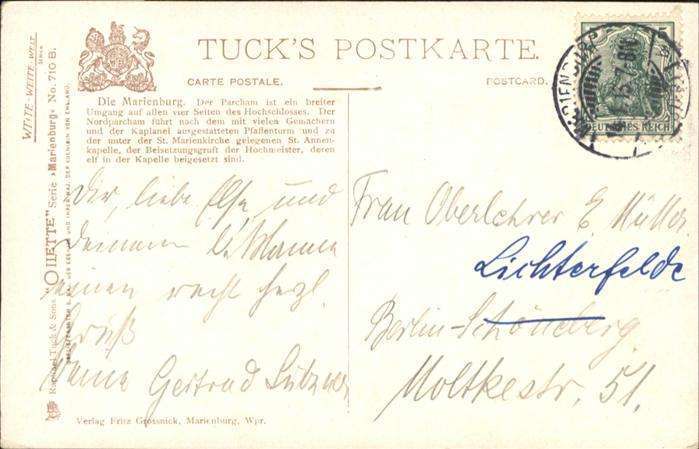 TUCK'S POSTKARTE.
CARTE POSTALE.
POSTCARD.
Die Marienburg. Der Parcham ist ein breiter
Umgang auf allen vier Seiten des Hochschlosses. Der
Nordparcham führt nach dem mit vielen Gemächern
und der Kaplanei ausgestatteten Pfaffenturm und zu
der unter der St. Marienkirche gelegenen St. Annen-
kapelle, der Beisetzungsgruft der Hochmeister, deren
elf in der Kapelle beigesetzt sind.
Dir, liebe Else und
Deinem l. Manne
einen recht herzl.
Gruß
Deine Gertrud
Frau Oberlehrer E. Müller
Lichterfelde
Berlin-Schöneberg
Moltkestr. 51.
Verlag Fritz Grossnick, Marienburg, Wpr.
WEITE-WEITE-WELT
Raphael Tuck & Sons "OILETTE" Serie »Marienburg« No. 710 B.
DEUTSCHES REICH
5